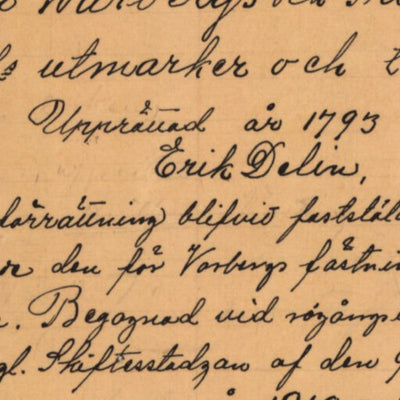 Warbergs
utmarker och
Upprättad år 1793
Erik Delin,
förrättning blifvit fastställd
den för Varbergs fästnin
Begagnad vid rågångs
gl. Skiftesstadgan af den 9